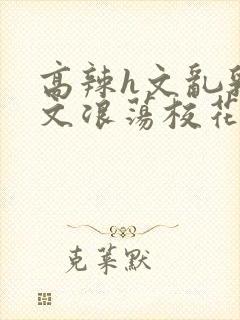 高辣h文乱乳
文浪荡校花
克莱默